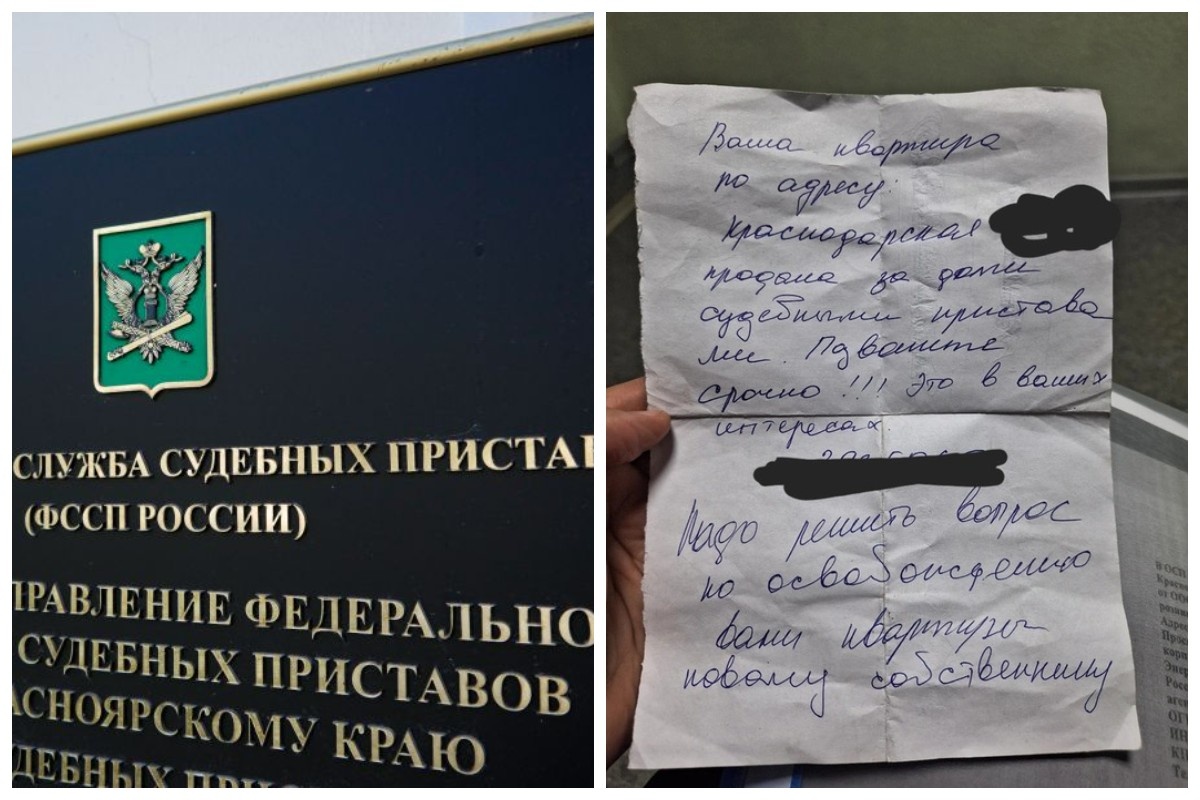 СЛУЖБА СУДЕБНЫХ ПРИСТАВ
(ФССП РОССИИ)
ПРАВЛЕНИЕ ФЕДЕРАЛЬНО
СУДЕБНЫХ ПРИСТАВОВ
АСНОЯРСКОМУ КРАЮ
ДЕБНЫХ ПРИСТ
Ваша квартира
по адресу:
Краснодарская
продана за долги
судебными пристава
ми. Позвоните
срочно!!! Это в ваших
интересах.
Надо решить вопрос
по освобождению
вами квартиры
новому собственнику
В ОСП
Красно
от ООО
Адрес
корп
Энер
Росс
аген
ОГ
ИН
КП
Те